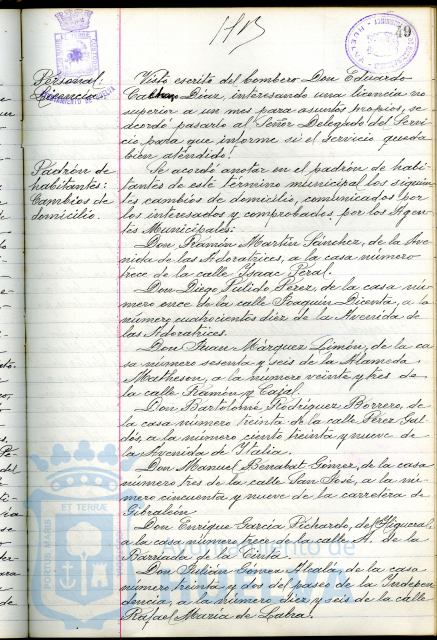 49
Personal:
Licencia.
Visto escrito del bombero Don Eduardo
Díaz, interesando una licencia no
superior a un mes para asuntos propios, se
acordó pasarlo al Señor Delegado del Servi-
cio para que informe si el servicio queda
bien atendido.
Padrón de
habitantes:
Cambios de
domicilio.
Se acordó anotar en el padrón de habi-
tantes de este término municipal los siguien-
tes cambios de domicilio, comunicados por
los interesados y comprobados por los Agen-
tes Municipales:
Don Ramón Martín Sánchez, de la Ave-
nida de las Adoratrices, a la casa número
trece de la calle Isaac Peral.
Don Diego Pulido Pérez, de la casa nú-
mero once de la calle Joaquín Dicenta, a la
número cuatrocientos diez de la Avenida de
las Adoratrices.
Don Juan Márquez Limón, de la ca-
sa número sesenta y seis de la Alameda
Matheson, a la número veinte y tres de
la calle Ramón y Cajal.
Don Bartolomé Rodríguez Borrero, de
la casa número treinta de la calle Pérez Gal-
dós, a la número ciento treinta y nueve de
la Avenida de Italia.
Don Manuel Benabat Gómez, de la casa
número tres de la calle San José, a la nú-
mero cincuenta y nueve de la carretera de
Gibraleón
Don Enrique García Pichardo, de Higueral,
a la casa número trece de la calle A. de la
Barriada de la
Don Julián Gómez Alcalá, de la casa
número treinta y dos del paseo de la Indepen-
dencia, a la número diez y seis de la calle
Rafael María de Labra.
PORTUS MARIS ET TERRAE
Ayuntamiento de